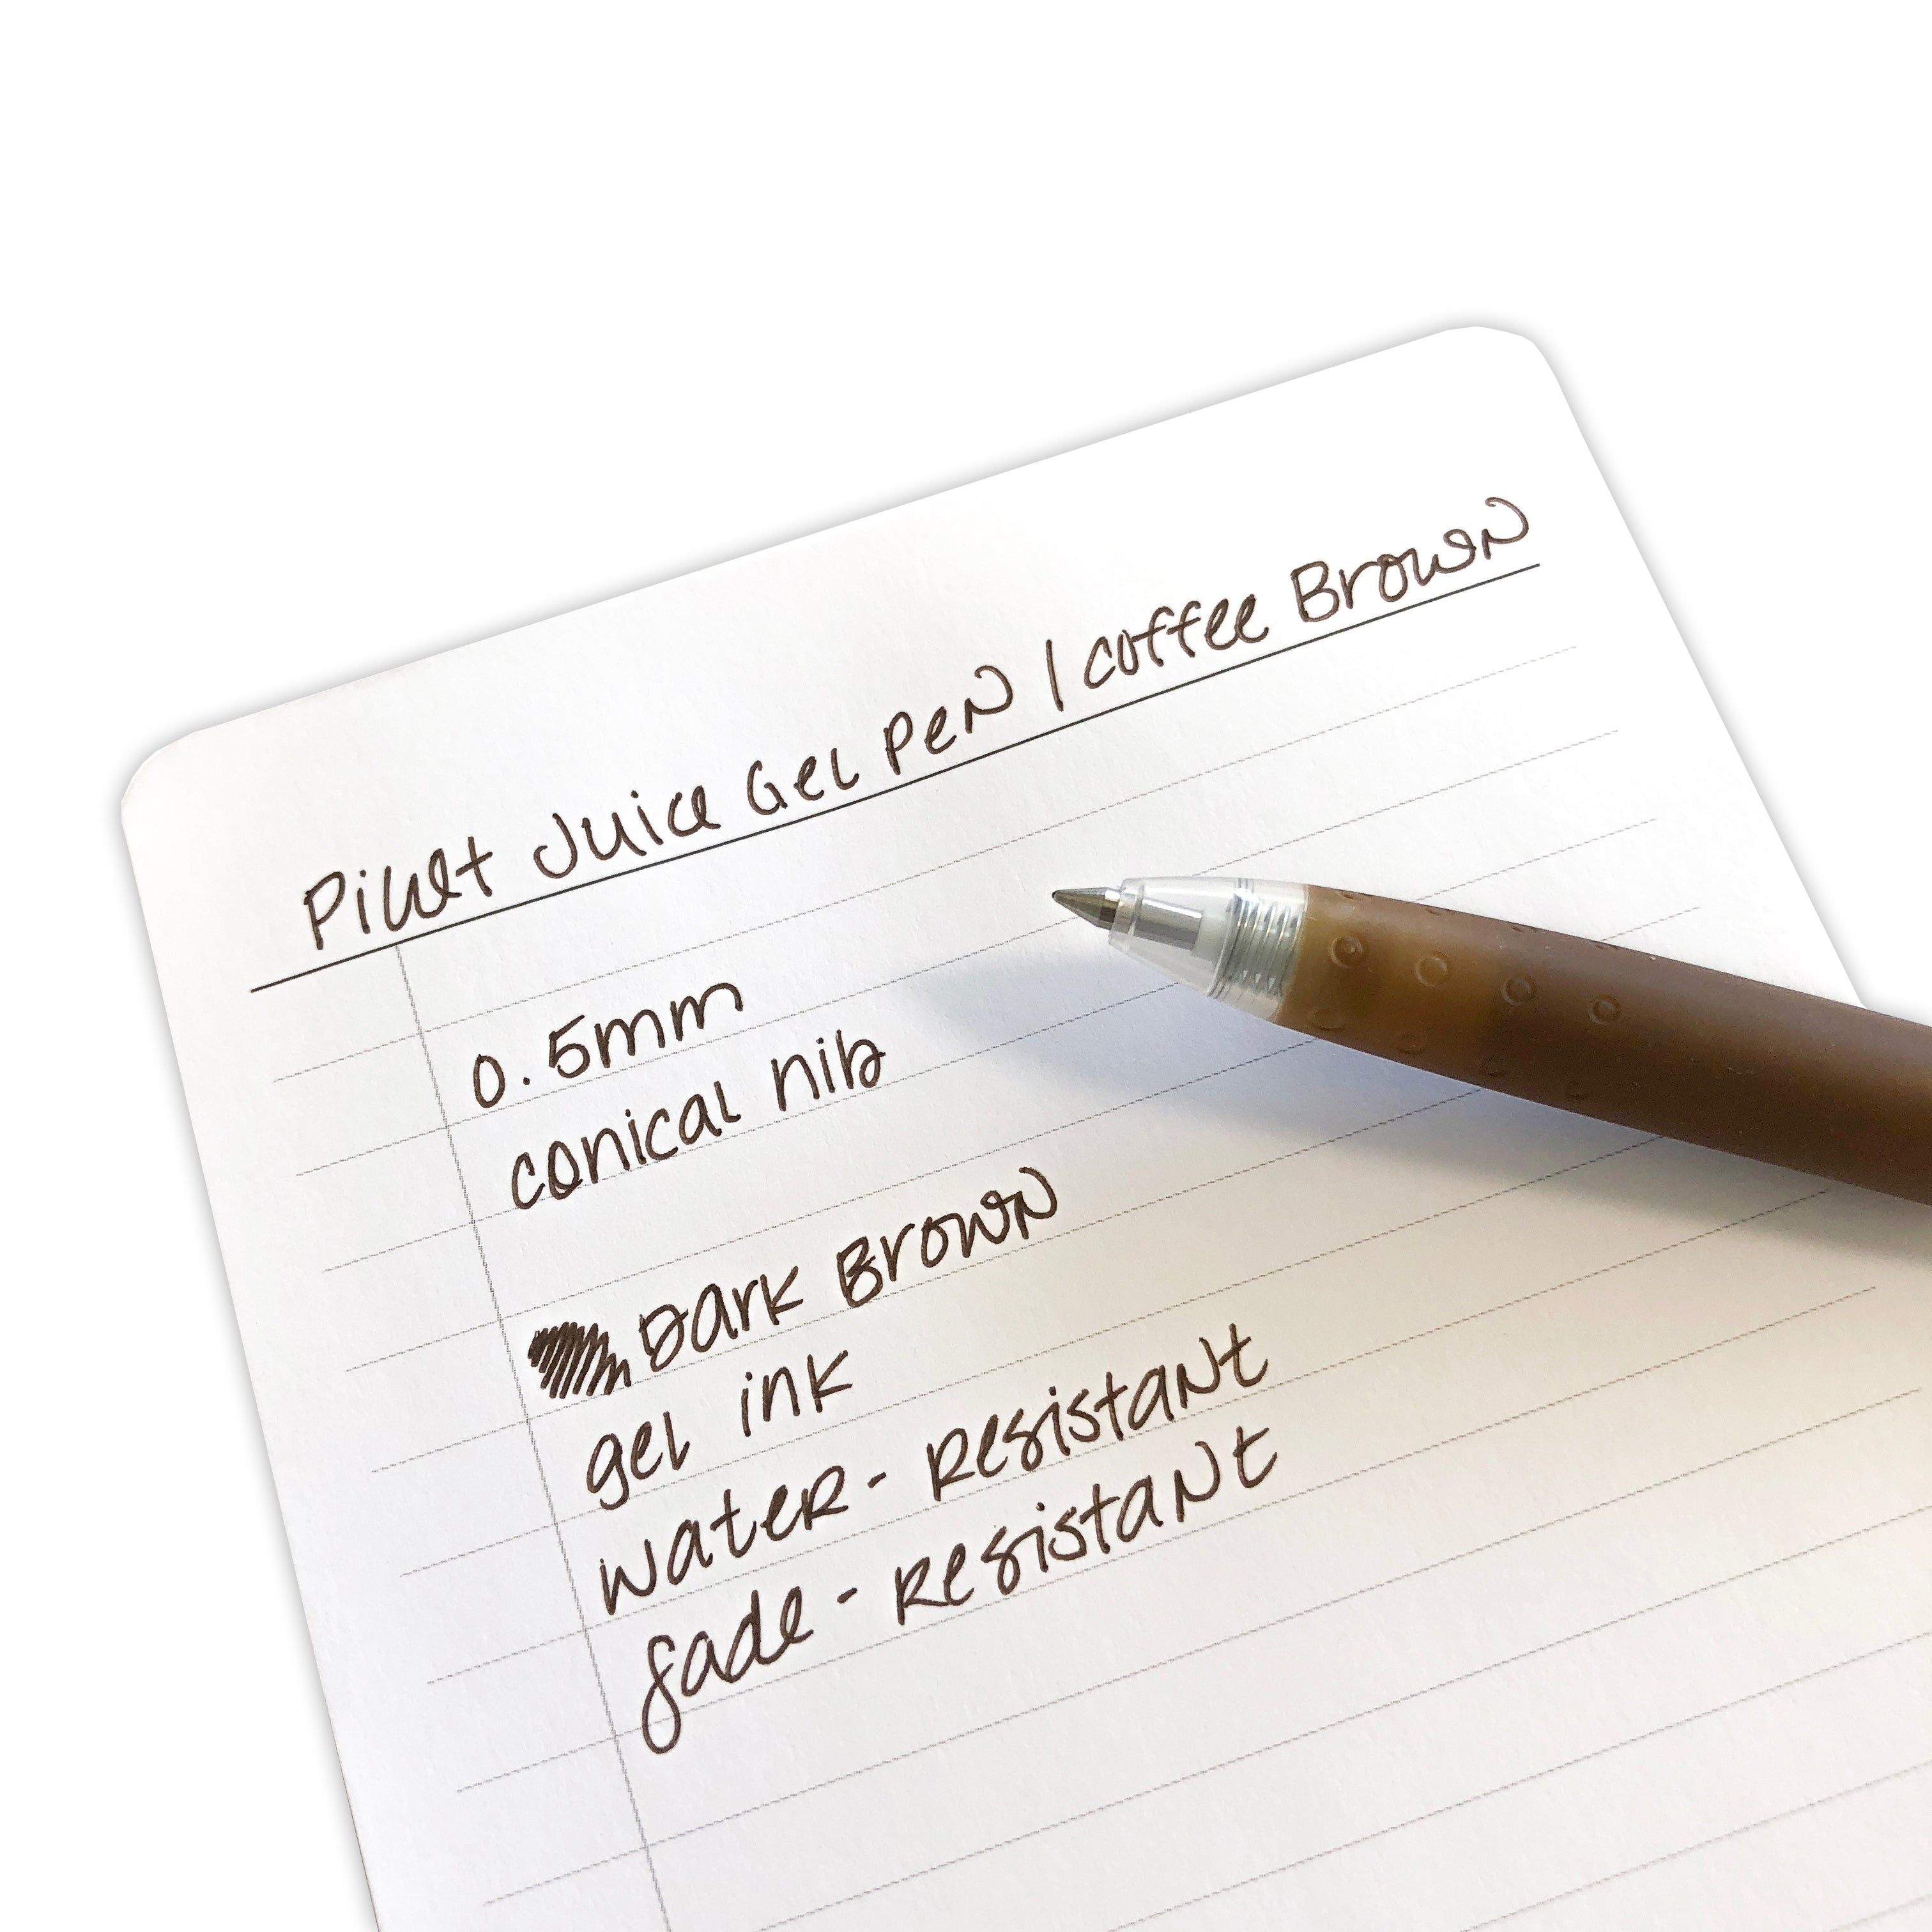 Pilot Juice Gel Pen | Coffee Brown
0.5mm
conical nib
Dark Brown
gel ink
water-resistant
fade-resistant